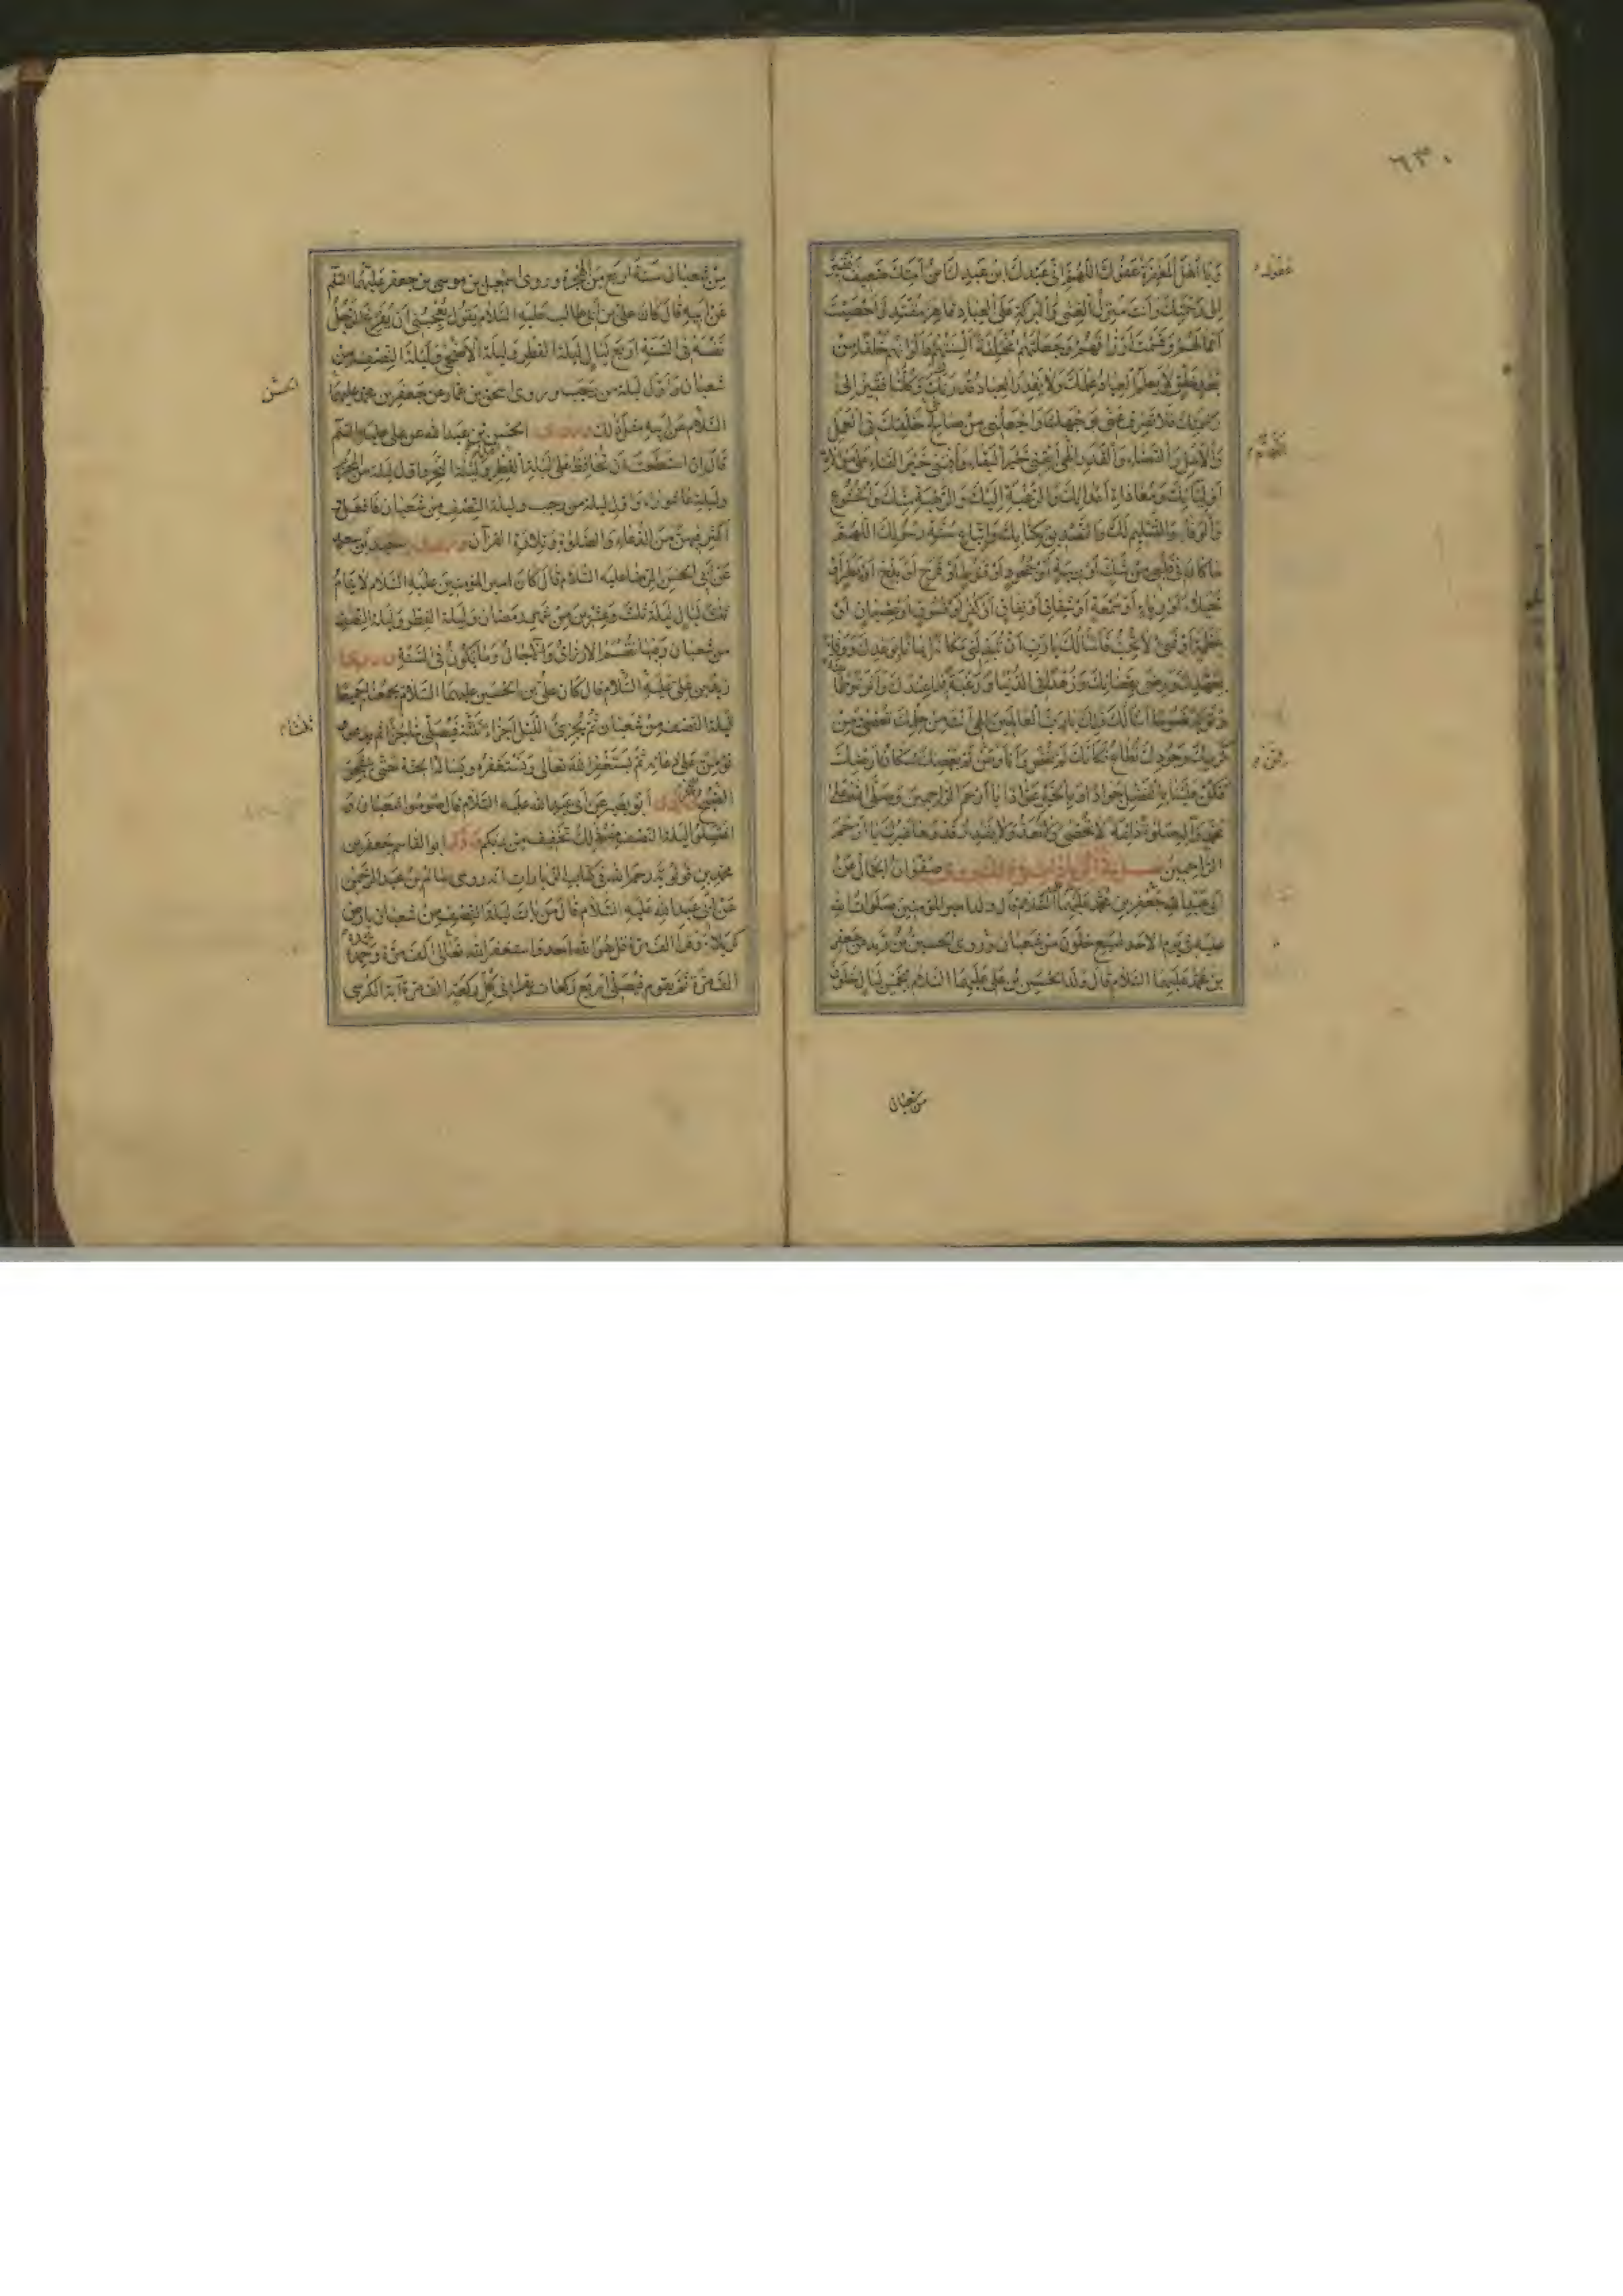 ٦٣٠
وَيَا أَهْلَ الْمَغْفِرَةِ عَفْوَكَ اللَّهُمَّ إِنِّي عَبْدُكَ ابْنُ عَبْدِكَ أَمَتِكَ ضَعِيفٌ فَقِيرٌ
إِلَى رَحْمَتِكَ وَأَنْتَ مُنْزِلُ الْغِنَى وَالْبَرَكَةِ عَلَى الْعِبَادِ قَاهِرٌ مُقْتَدِرٌ أَحْصَيْتَ
أَعْمَالَهُمْ وَقَسَمْتَ أَرْزَاقَهُمْ وَجَعَلْتَهُمْ مُخْتَلِفَةً أَلْسِنَتُهُمْ وَأَلْوَانُهُمْ خَلْقًا مِنْ
بَعْدِ خَلْقٍ لَا يَعْلَمُ الْعِبَادُ عِلْمَكَ وَلَا يَقْدِرُ الْعِبَادُ قَدْرَكَ وَكُلُّنَا فَقِيرٌ إِلَى
رَحْمَتِكَ فَلَا تَصْرِفْ عَنِّي وَجْهَكَ وَاجْعَلْنِي مِنْ صَالِحِ خَلْقِكَ فِي الْعَمَلِ
وَالْأَمَلِ وَالْقَضَاءِ وَالْقَدَرِ اللَّهُمَّ أَبْقِنِي خَيْرَ الْبَقَاءِ وَأَفْنِنِي خَيْرَ الْفَنَاءِ عَلَى مُوَالَاةِ
أَوْلِيَائِكَ وَمُعَادَاةِ أَعْدَائِكَ وَالرَّغْبَةِ إِلَيْكَ وَالرَّهْبَةِ مِنْكَ وَالْخُشُوعِ
وَالْوَفَاءِ وَالتَّسْلِيمِ لَكَ وَالتَّصْدِيقِ بِكِتَابِكَ وَاتِّبَاعِ سُنَّةِ رَسُولِكَ اللَّهُمَّ
مَا كَانَ فِي قَلْبِي مِنْ شَكٍّ أَوْ رِيبَةٍ أَوْ جُحُودٍ أَوْ قُنُوطٍ أَوْ فَرَحٍ أَوْ بَذَخٍ أَوْ بَطَرٍ أَوْ
خُيَلَاءَ أَوْ رِيَاءٍ أَوْ سُمْعَةٍ أَوْ شِقَاقٍ أَوْ نِفَاقٍ أَوْ كُفْرٍ أَوْ فُسُوقٍ أَوْ عِصْيَانٍ أَوْ
عَظَمَةٍ أَوْ شَيْءٍ لَا تُحِبُّ فَأَسْأَلُكَ يَا رَبِّ أَنْ تُبَدِّلَنِي مَكَانَهُ إِيمَانًا بِوَعْدِكَ وَوَفَاءً
بِعَهْدِكَ وَرِضًى بِقَضَائِكَ وَزُهْدًا فِي الدُّنْيَا وَرَغْبَةً فِيمَا عِنْدَكَ
أَسْأَلُكَ ذَلِكَ يَا رَبَّ الْعَالَمِينَ إِلَهِي أَنْتَ مِنْ حِلْمِكَ تُعْصَى وَمِنْ
كَرَمِكَ وَجُودِكَ تُطَاعُ فَكَأَنَّكَ لَمْ تُعْصَ وَأَنَا وَمَنْ لَمْ يَعْصِكَ سُكَّانُ أَرْضِكَ
فَكُنْ عَلَيْنَا بِالْفَضْلِ جَوَادًا وَبِالْخَيْرِ عَوَّادًا يَا أَرْحَمَ الرَّاحِمِينَ وَصَلَّى اللَّهُ عَلَى
مُحَمَّدٍ وَآلِهِ صَلَاةً دَائِمَةً لَا تُحْصَى وَلَا تُعَدُّ وَلَا يَقْدِرُ قَدْرَهَا غَيْرُكَ يَا أَرْحَمَ
الرَّاحِمِينَ صَفْوَانُ الْجَمَّالُ عَنْ
أَبِي عَبْدِ اللَّهِ جَعْفَرِ بْنِ مُحَمَّدٍ عَلَيْهِمَا السَّلَامُ قَالَ وُلِدَ أَمِيرُ الْمُؤْمِنِينَ صَلَوَاتُ اللَّهِ
عَلَيْهِ فِي يَوْمِ الْأَحَدِ لِسَبْعٍ خَلَوْنَ مِنْ شَعْبَانَ وَرَوَى الْحُسَيْنُ بْنُ زَيْدٍ عَنْ جَعْفَرِ
بْنِ مُحَمَّدٍ عَلَيْهِمَا السَّلَامُ قَالَ وُلِدَ الْحُسَيْنُ بْنُ عَلِيٍّ عَلَيْهِمَا السَّلَامُ لِخَمْسِ لَيَالٍ خَلَوْنَ
من شعبان
مِنْ شَعْبَانَ سَنَةَ أَرْبَعٍ مِنَ الْهِجْرَةِ وروى اسمعيل بن موسى بن جعفر عَلَيْهِمَا السَّلَمُ
عَنْ أَبِيهِ قَالَ كَانَ عَلِيُّ بْنُ أَبِي طَالِبٍ عَلَيْهِ السَّلَامُ يَقُولُ يُعْجِبُنِي أَنْ يُفَرِّغَ الرَّجُلُ
نَفْسَهُ فِي السَّنَةِ أَرْبَعَ لَيَالٍ لَيْلَةَ الْفِطْرِ وَلَيْلَةَ الْأَضْحَى وَلَيْلَةَ النِّصْفِ مِنْ
شَعْبَانَ وَأَوَّلَ لَيْلَةٍ مِنْ رَجَبٍ وروى اسحق بن عمار عن جَعْفَرِ بْنِ محمد عليهما
السَّلَامُ عَنْ أَبِيهِ مِثْلَ ذَلِكَ الْحُسَيْنِ بْنِ عَبْدِ اللَّهِ عن علي عليه السلم
قَالَ إِنِ اسْتَطَعْتَ أَنْ تُحَافِظَ عَلَى لَيْلَةِ الْفِطْرِ وَلَيْلَةِ النَّحْرِ وَأَوَّلِ لَيْلَةٍ مِنَ الْمُحَرَّمِ
وليلة عاشوراء وَأَوَّلِ لَيْلَةٍ مِنْ رجب وليلة النِّصْفِ مِنْ شَعْبَانَ فَافْعَلْ وَ
أَكْثِرْ فِيهِنَّ مِنَ الدُّعَاءِ وَالصَّلَوةِ وَتِلَاوَةِ الْقُرْآنِ
عَنْ أَبِي الْحَسَنِ الرِّضَا عليه السَّلَامُ قَالَ كَانَ أَمِيرُ الْمُؤْمِنِينَ عَلَيْهِ السَّلَامُ لَا يَنَامُ
ثَلَاثَ لَيَالٍ لَيْلَةَ ثَلَاثٍ وَعِشْرِينَ مِنْ شَهْرِ رَمَضَانَ وَلَيْلَةَ الْفِطْرِ وَلَيْلَةَ النِّصْفِ
مِنْ شَعْبَانَ وَفِيهَا تُقْسَمُ الْأَرْزَاقُ وَالْآجَالُ وَمَا يَكُونُ فِي السَّنَةِ
زَيْدُ بْنُ عَلِيٍّ عَلَيْهِ السَّلَامُ قَالَ كَانَ عَلِيُّ بْنُ الْحُسَيْنِ عَلَيْهِمَا السَّلَامُ يَجْمَعُنَا جَمِيعًا
لَيْلَةَ النِّصْفِ مِنْ شَعْبَانَ ثُمَّ يُجَزِّئُ اللَّيْلَ أَجْزَاءً ثَلَاثَةً فَيُصَلِّي بِنَا جُزْءًا ثُمَّ يَدْعُو
وَنُؤَمِّنُ عَلَى دُعَائِهِ ثُمَّ يَسْتَغْفِرُ اللَّهَ تَعَالَى وَنَسْتَغْفِرُهُ وَنَسْأَلُهُ الْجَنَّةَ حَتَّى
أَبُو بَصِيرٍ عَنْ أَبِي عَبْدِ اللَّهِ عَلَيْهِ السَّلَامُ قَالَ صُومُوا شَعْبَانَ وَ
اغْتَسِلُوا لَيْلَةَ النِّصْفِ مِنْهُ ذَلِكَ تَخْفِيفٌ مِنْ رَبِّكُمْ أَبُو الْقَاسِمِ جَعْفَرُ بْنُ
مُحَمَّدِ بْنِ قُولَوَيْهِ رَحِمَهُ اللَّهُ فِي كتاب الزيارات أنه روى سَالِمُ بْنُ عَبْدِ الرَّحْمَنِ
عَنْ أَبِي عَبْدِ اللَّهِ عَلَيْهِ السَّلَامُ قَالَ مَنْ بَاتَ لَيْلَةَ النِّصْفِ مِنْ شَعْبَانَ بِأَرْضِ
كَرْبَلَاءَ وَقَرَأَ أَلْفَ مَرَّةٍ قُلْ هُوَ اللَّهُ أَحَدٌ وَاسْتَغْفَرَ اللَّهَ تَعَالَى أَلْفَ مَرَّةٍ
أَلْفَ مَرَّةٍ ثُمَّ يَقُومُ فَيُصَلِّي أَرْبَعَ رَكَعَاتٍ يَقْرَأُ فِي كُلِّ رَكْعَةٍ أَلْفَ مَرَّةٍ آيَةَ الْكُرْسِيِّ